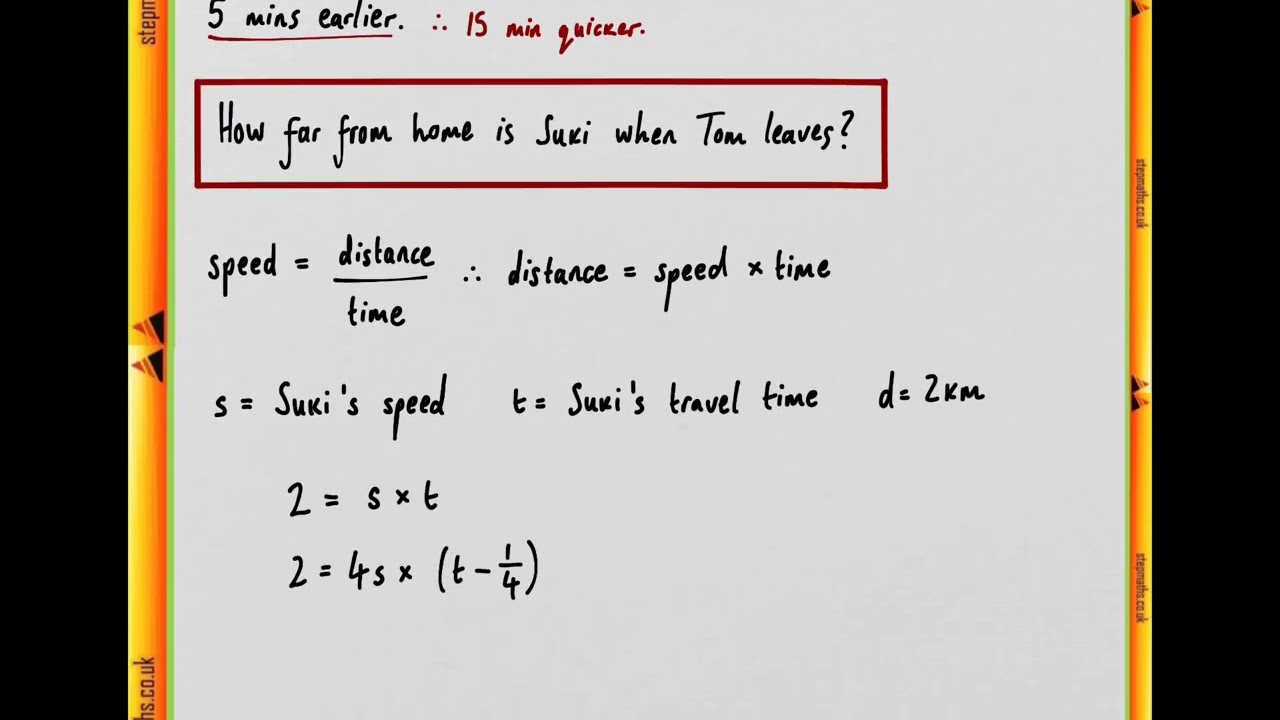 5 mins earlier. ∴ 15 min quicker.
How far from home is Suki when Tom leaves?
speed = distance / time ∴ distance = speed × time
s = Suki's speed t = Suki's travel time d = 2km
2 = s × t
2 = 4s × (t - 1/4)
stepm
hs.co.uk
stepmaths.co.uk
stepmaths.co.uk